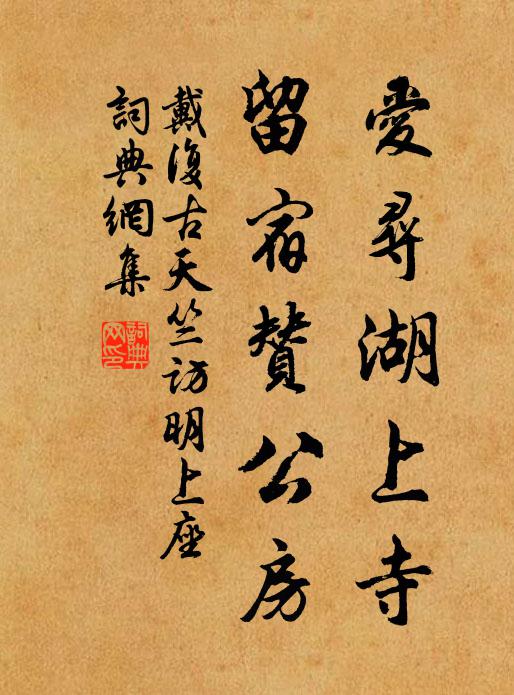 愛尋湖上寺
留宿贊公房
戴復古天竺訪明上座
詞典網集
詞典
网印